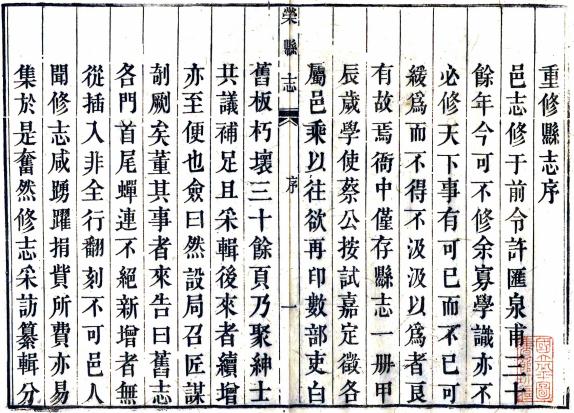 重修縣志序
邑志修于前令許匯泉甫三十
餘年今可不修余寡學識亦不
必修天下事有可已而不已可
緩爲而不得不汲汲以爲者良
有故焉衙中僅存縣志一册甲
辰歲學使蔡公按試嘉定徵各
屬邑乘以往欲再印數部吏白
榮縣志
序
一
舊板朽壞三十餘頁乃聚紳士
共議補足且采輯後來者續增
亦至便也僉曰然設局召匠謀
剞劂矣董其事者來告曰舊志
各門首尾蟬連不絕新增者無
從插入非全行翻刻不可邑人
聞修志咸踴躍捐貲所費亦易
集於是奮然修志采訪纂輯分